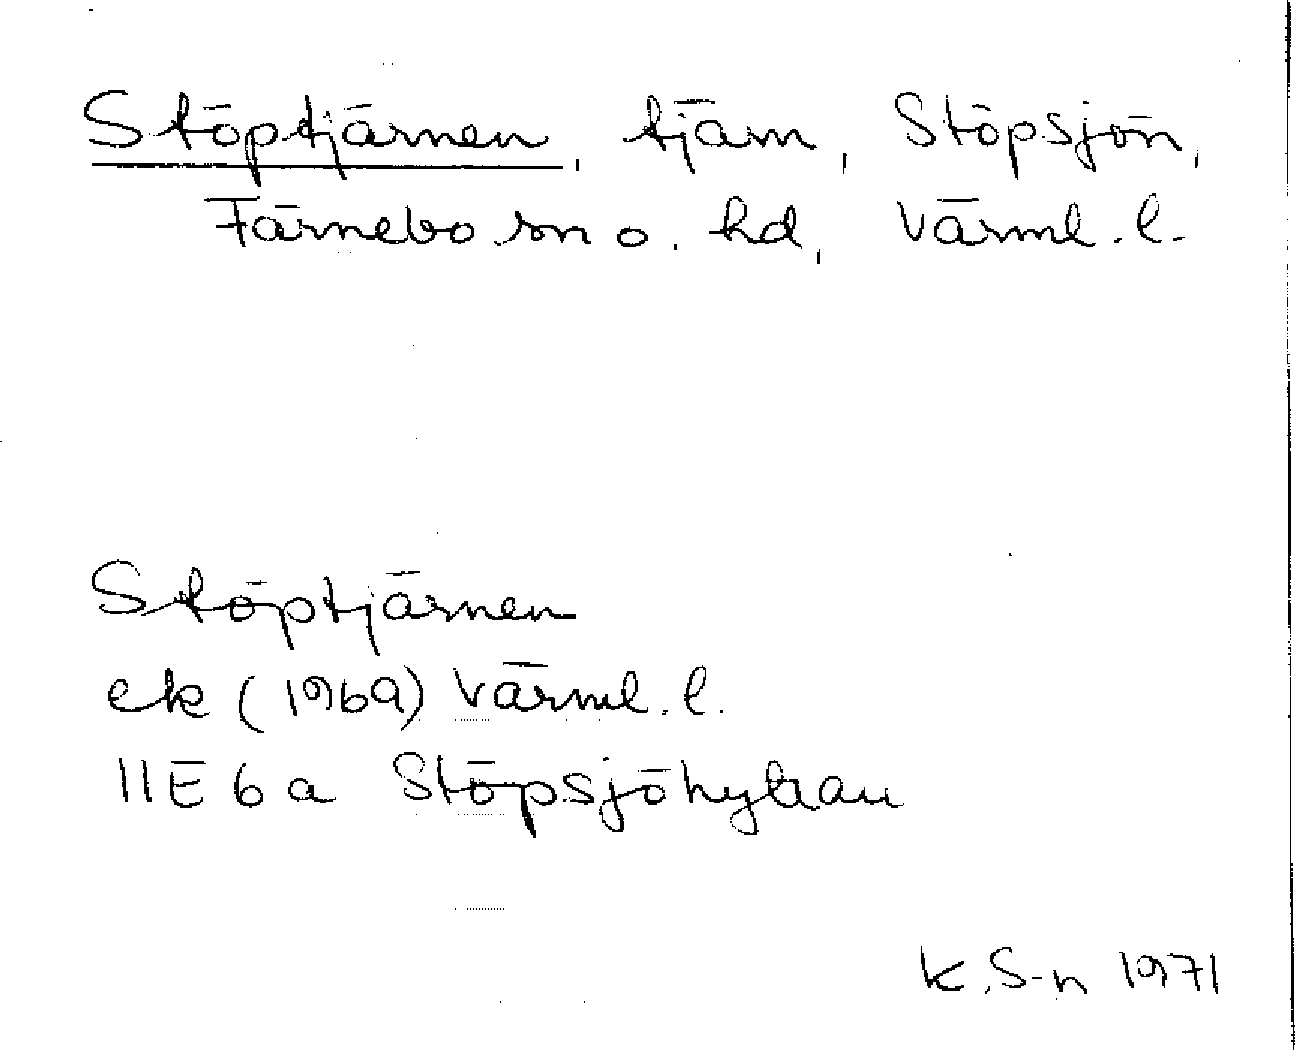 Stöptjärnen, tjärn, Stöpsjön,
Färnebo sn o. hd, Värml. l.
Stöptjärnen
ek (1969) Värml. l.
11E 6a Stöpsjöhyttan
K.S-n 1971